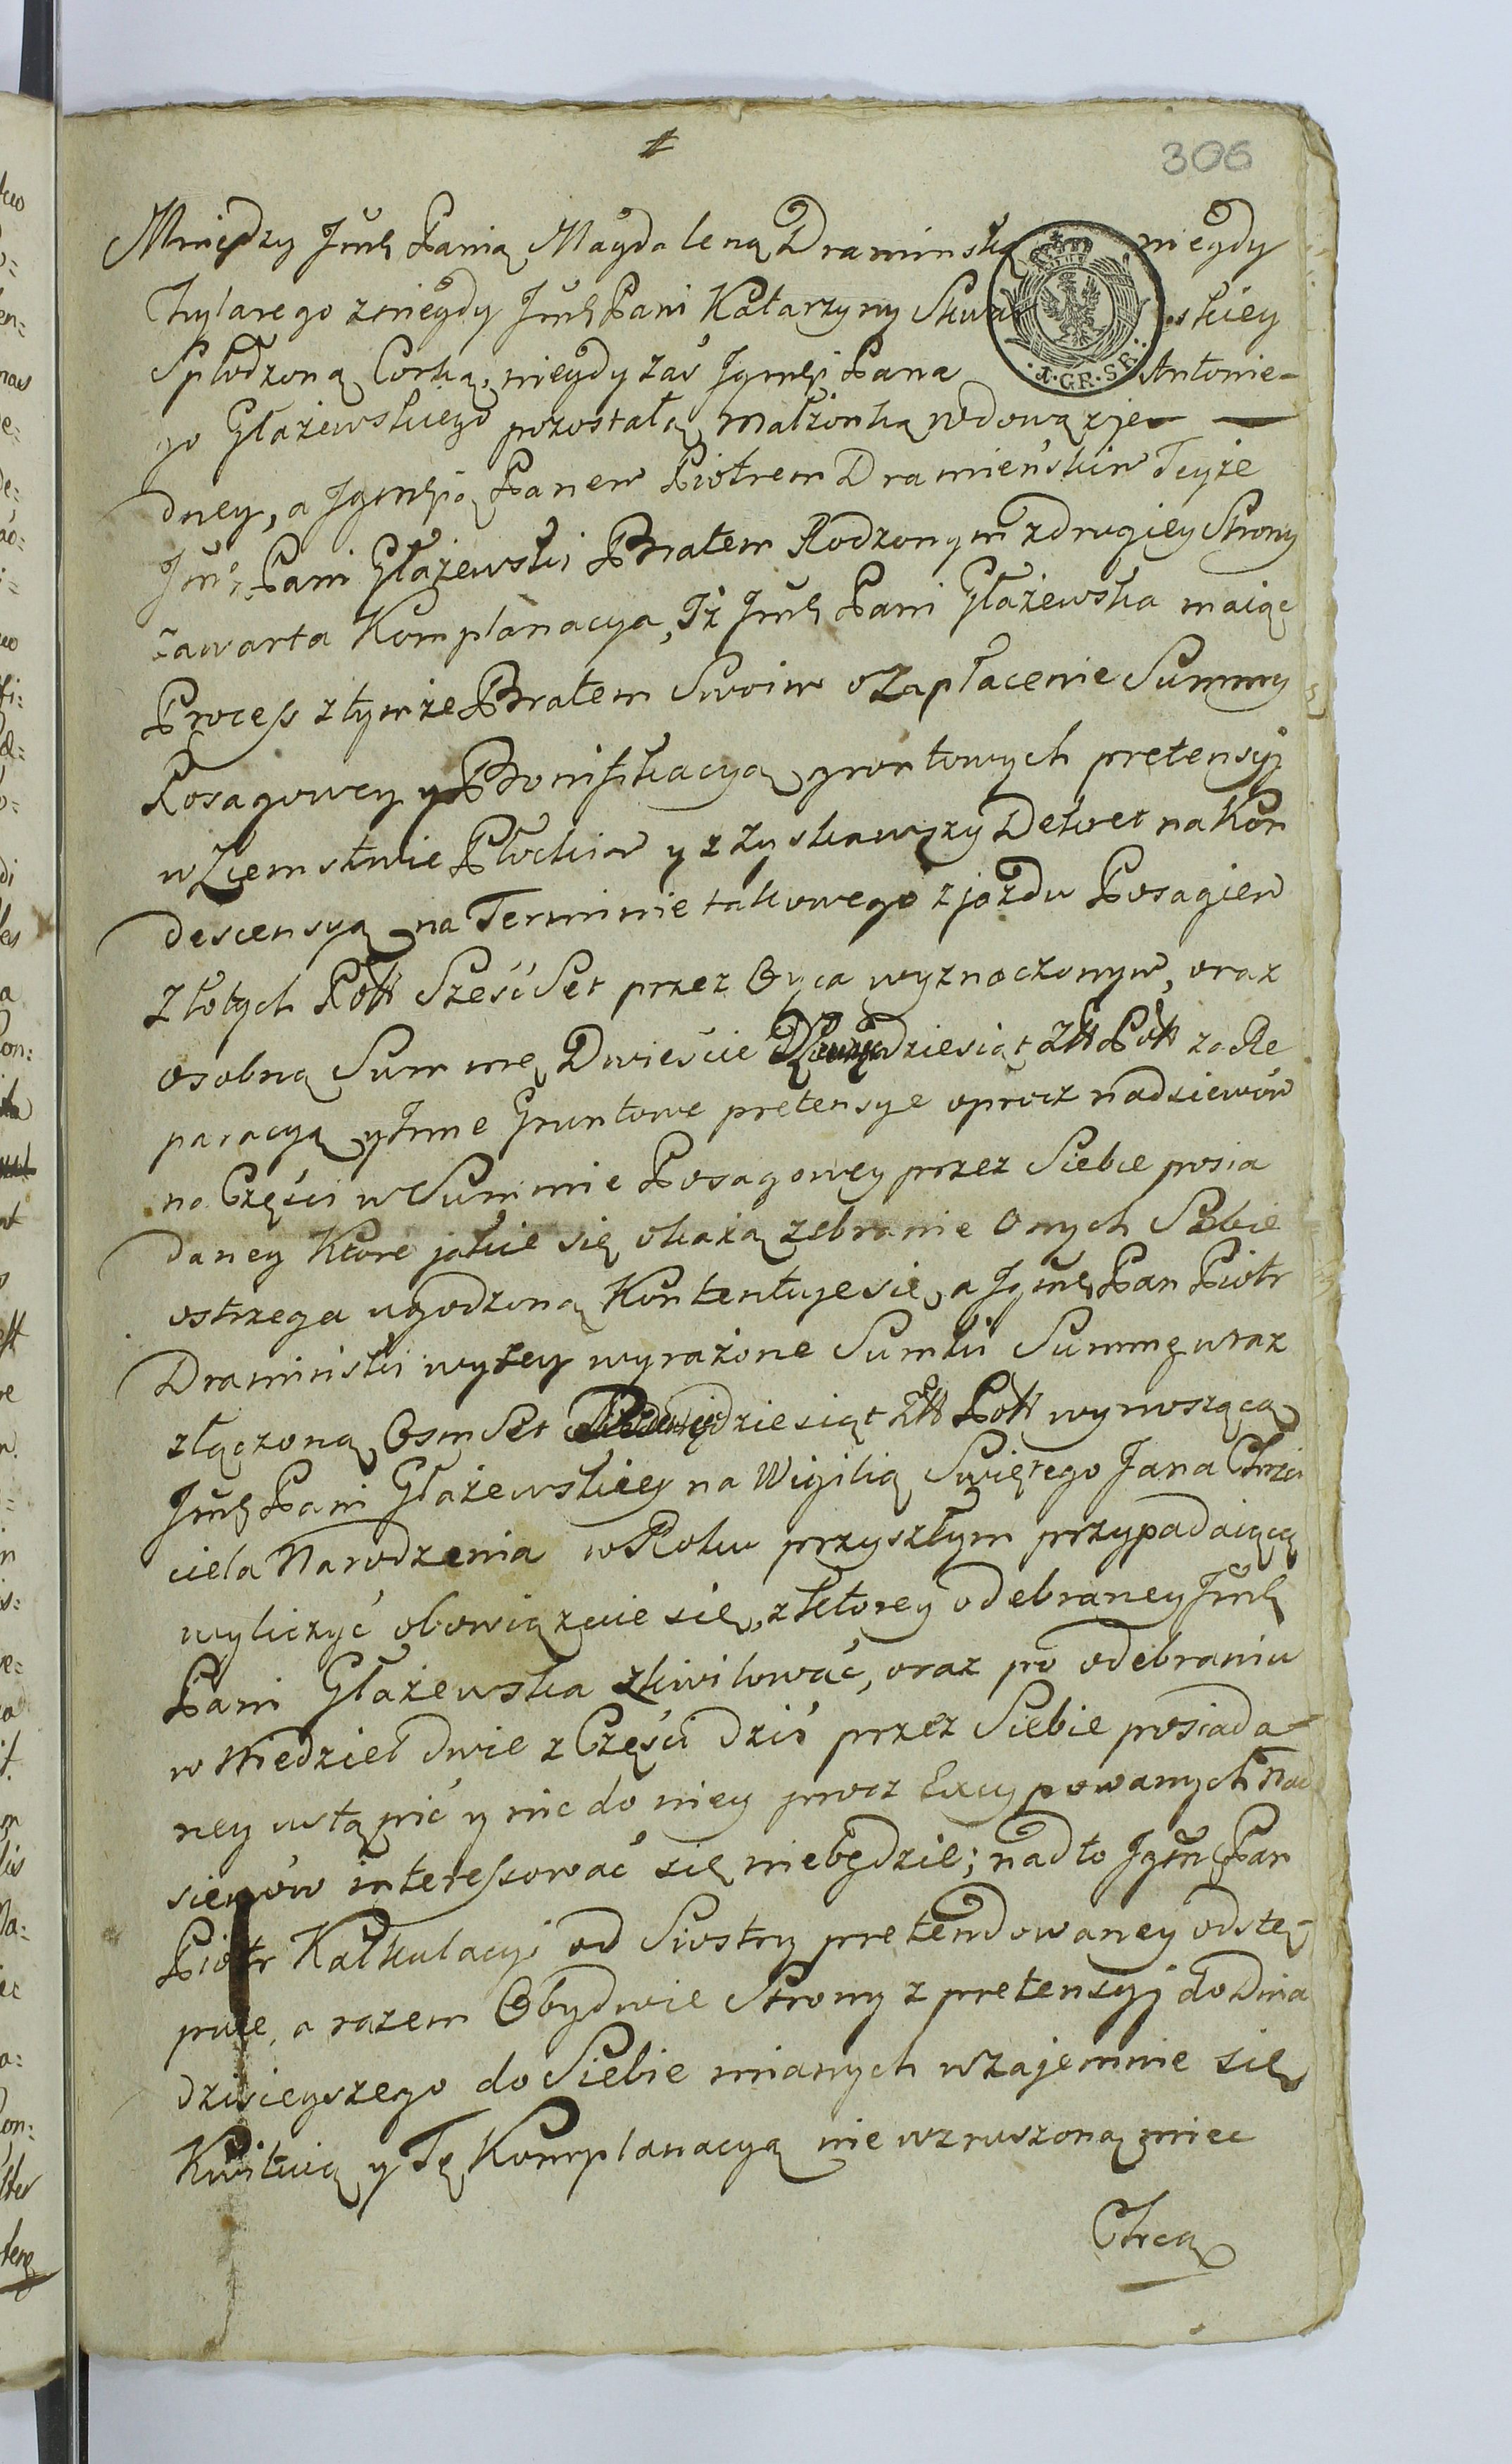 306
Między Jmę Panią Magdaleną Dramińską niegdy
Hylarego z niegdy Jmę Pani Katarzyny skiey
Spłodzoną Corką, niegdy zaś Jgmę Pana Antonie-
go Głażewskiego pozostałą małżonką wdową z je-
dney, a Jgmścią Panem Piotrem Dramieńskim Teyże
Jmę Pani Głażewski Bratem Rodzonym z drugiey Strony
zawarta Komplanacya, Iż Jmę Pani Głażewska maiąc
Process z tymże Bratem Swoim o Zapłacenie Summy
Posagowey y Bonifikacyą grontowych pretensyi
w Ziemstwie Płockim y zzyskawszy Dekret na Kon
descensyą na Terminie takowego zjazdu Posagiem
Złotych Poll Sześć Set przez Oyca wyznaczonym, oraz
osobną Summę Dwieście dziesiąt Złł Poll za Re
paracyą y Inne Gruntowe pretensye oprocz nadsiewów
na Części w Summie Posagowey przez Siebie posia
daney Ktore jakie się okażą zebranie Onych Sobie
ostrzega ugodzoną Kontentuje sie, a Jgmę Pan Piotr
Dramiński wyżey wyrażone Sumki Summę wraz
złączoną Osm Set dziesiąt Złł Poll wynoszącą
Jmę Pani Głażewskiey na Wigilią Swiętego Jana Chrzci
ciela Narodzenia w Roku przyszłym przypadaiącą
wyliczyć obowiązuie się, z ktorey odebraney Jmę
Pani Głażewska zkwitować, oraz po odebraniu
w Niedziel dwie z Części dziś przez Siebie posiada-
ney ustąpić y nic do niey procz Excypowanych Nad
siewów interessować się niebędzie; nadto Jgmę Pan
Piotr Kalkulacyi od Siostry pretendowaney odstę-
puie, a razem Obydwie Strony z pretensyi do Dnia
dzisieyszego do Siebie mianych wzajemnie się
Kwituią y Tę Komplanacyą nie wzruszoną miec
Chcą